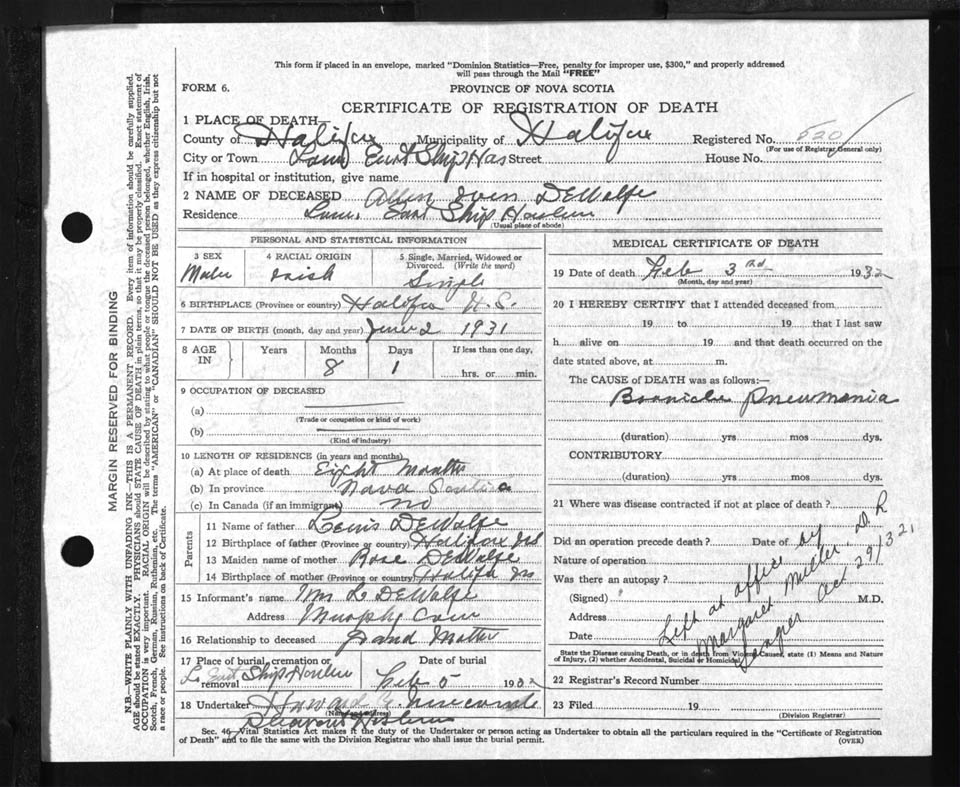 This form if placed in an envelope, marked "Dominion Statistics—Free, penalty for improper use, $300," and properly addressed
will pass through the Mail "FREE"
FORM 6.
PROVINCE OF NOVA SCOTIA
CERTIFICATE OF REGISTRATION OF DEATH
1 PLACE OF DEATH—
County of Halifax Municipality of Halifax Registered No. 520
(For use of Registrar General only)
City or Town East Ship Har Street House No.
If in hospital or institution, give name
2 NAME OF DECEASED Allen Owen DeWolfe
Residence East Ship Harbour
(Usual place of abode)
PERSONAL AND STATISTICAL INFORMATION
3 SEX
Male
4 RACIAL ORIGIN
Irish
5 Single, Married, Widowed or
Divorced. (Write the word)
Single
6 BIRTHPLACE (Province or country) Halifax N.S.
7 DATE OF BIRTH (month, day and year) June 2 1931
8 AGE IN Years Months Days If less than one day,
8 1 hrs. or min.
9 OCCUPATION OF DECEASED
(a)
(Trade or occupation or kind of work)
(b)
(Kind of industry)
10 LENGTH OF RESIDENCE (in years and months)
(a) At place of death Eight Months
(b) In province Nova Scotia
(c) In Canada (if an immigrant) no
Parents
11 Name of father Lewis DeWolfe
12 Birthplace of father (Province or country) Halifax NS
13 Maiden name of mother Rose DeWolfe
14 Birthplace of mother (Province or country) Halifa NS
15 Informant's name Mrs L DeWolfe
Address Murphy Cove
16 Relationship to deceased Grand Mother
17 Place of burial, cremation or removal East Ship Harbour
Date of burial Feb 5 1932
18 Undertaker Howard
(Name and address)
MEDICAL CERTIFICATE OF DEATH
19 Date of death Feb 3rd 1932
(Month, day and year)
20 I HEREBY CERTIFY that I attended deceased from
19 to 19 that I last saw
h alive on 19 and that death occurred on the
date stated above, at m.
The CAUSE of DEATH was as follows:—
Bronichu Pneumonia
(duration) yrs mos dys.
CONTRIBUTORY
(duration) yrs. mos. dys.
21 Where was disease contracted if not at place of death?
Did an operation precede death? Date of
Nature of operation
Was there an autopsy?
(Signed) M.D.
Address
Date
Left at office by
Margaret D. R
Oct 29/32
State the Disease causing Death, or in death from Violent Caused, state (1) Means and Nature
of Injury, (2) whether Accidental, Suicidal or Homicidal
22 Registrar's Record Number
23 Filed 19
(Division Registrar)
Sec. 46—Vital Statistics Act makes it the duty of the Undertaker or person acting as Undertaker to obtain all the particulars required in the "Certificate of Registration
of Death" and to file the same with the Division Registrar who shall issue the burial permit. (OVER)
MARGIN RESERVED FOR BINDING
N.B.—WRITE PLAINLY WITH UNFADING INK—THIS IS A PERMANENT RECORD. Every item of information should be carefully supplied.
AGE should be stated EXACTLY. PHYSICIANS should STATE CAUSE OF DEATH in plain terms, so that it may be properly classified. Exact statement of
OCCUPATION is very important. RACIAL ORIGIN will be described by stating to what people or tongue the deceased person belonged, whether English, Irish,
Scotch, French, German, Russian, Ruthenian, etc. The terms "AMERICAN" or "CANADIAN" SHOULD NOT BE USED as they express citizenship but not
a race or people. See instructions on back of Certificate.